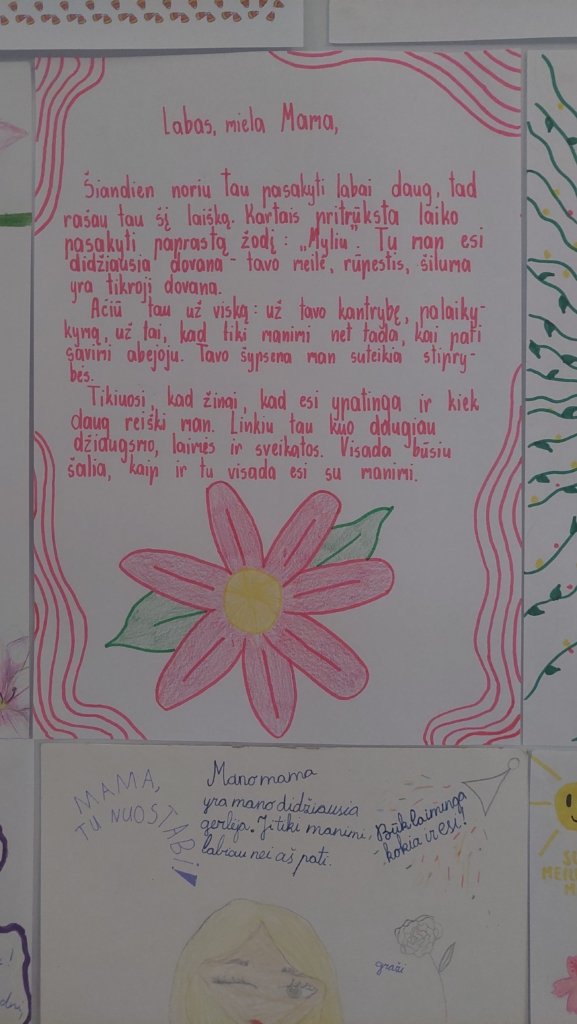 Labas, miela Mama,
Šiandien noriu tau pasakyti labai daug, tad
rašau tau šį laišką. Kartais pritrūksta laiko
pasakyti paprastą žodį: „Myliu”. Tu man esi
didžiausia dovana - tavo meilė, rūpestis, šiluma
yra tikroji dovana.
Ačiū tau už viską: už tavo kantrybę, palaiky-
kymą, už tai, kad tiki manimi net tada, kai pati
savimi abejoju. Tavo šypsena man suteikia stipry-
bės.
Tikiuosi, kad žinai, kad esi ypatinga ir kiek
daug reiški man. Linkiu tau kuo daugiau
džiaugsmo, laimės ir sveikatos. Visada būsiu
šalia, kaip ir tu visada esi su manimi.
MAMA,
TU NUOSTABI!
Mano mama
yra mano didžiausia
gerbėja. Ji tiki manimi,
labiau nei aš pati.
Būk laiminga
kokia ir esi!
graži
MEIL